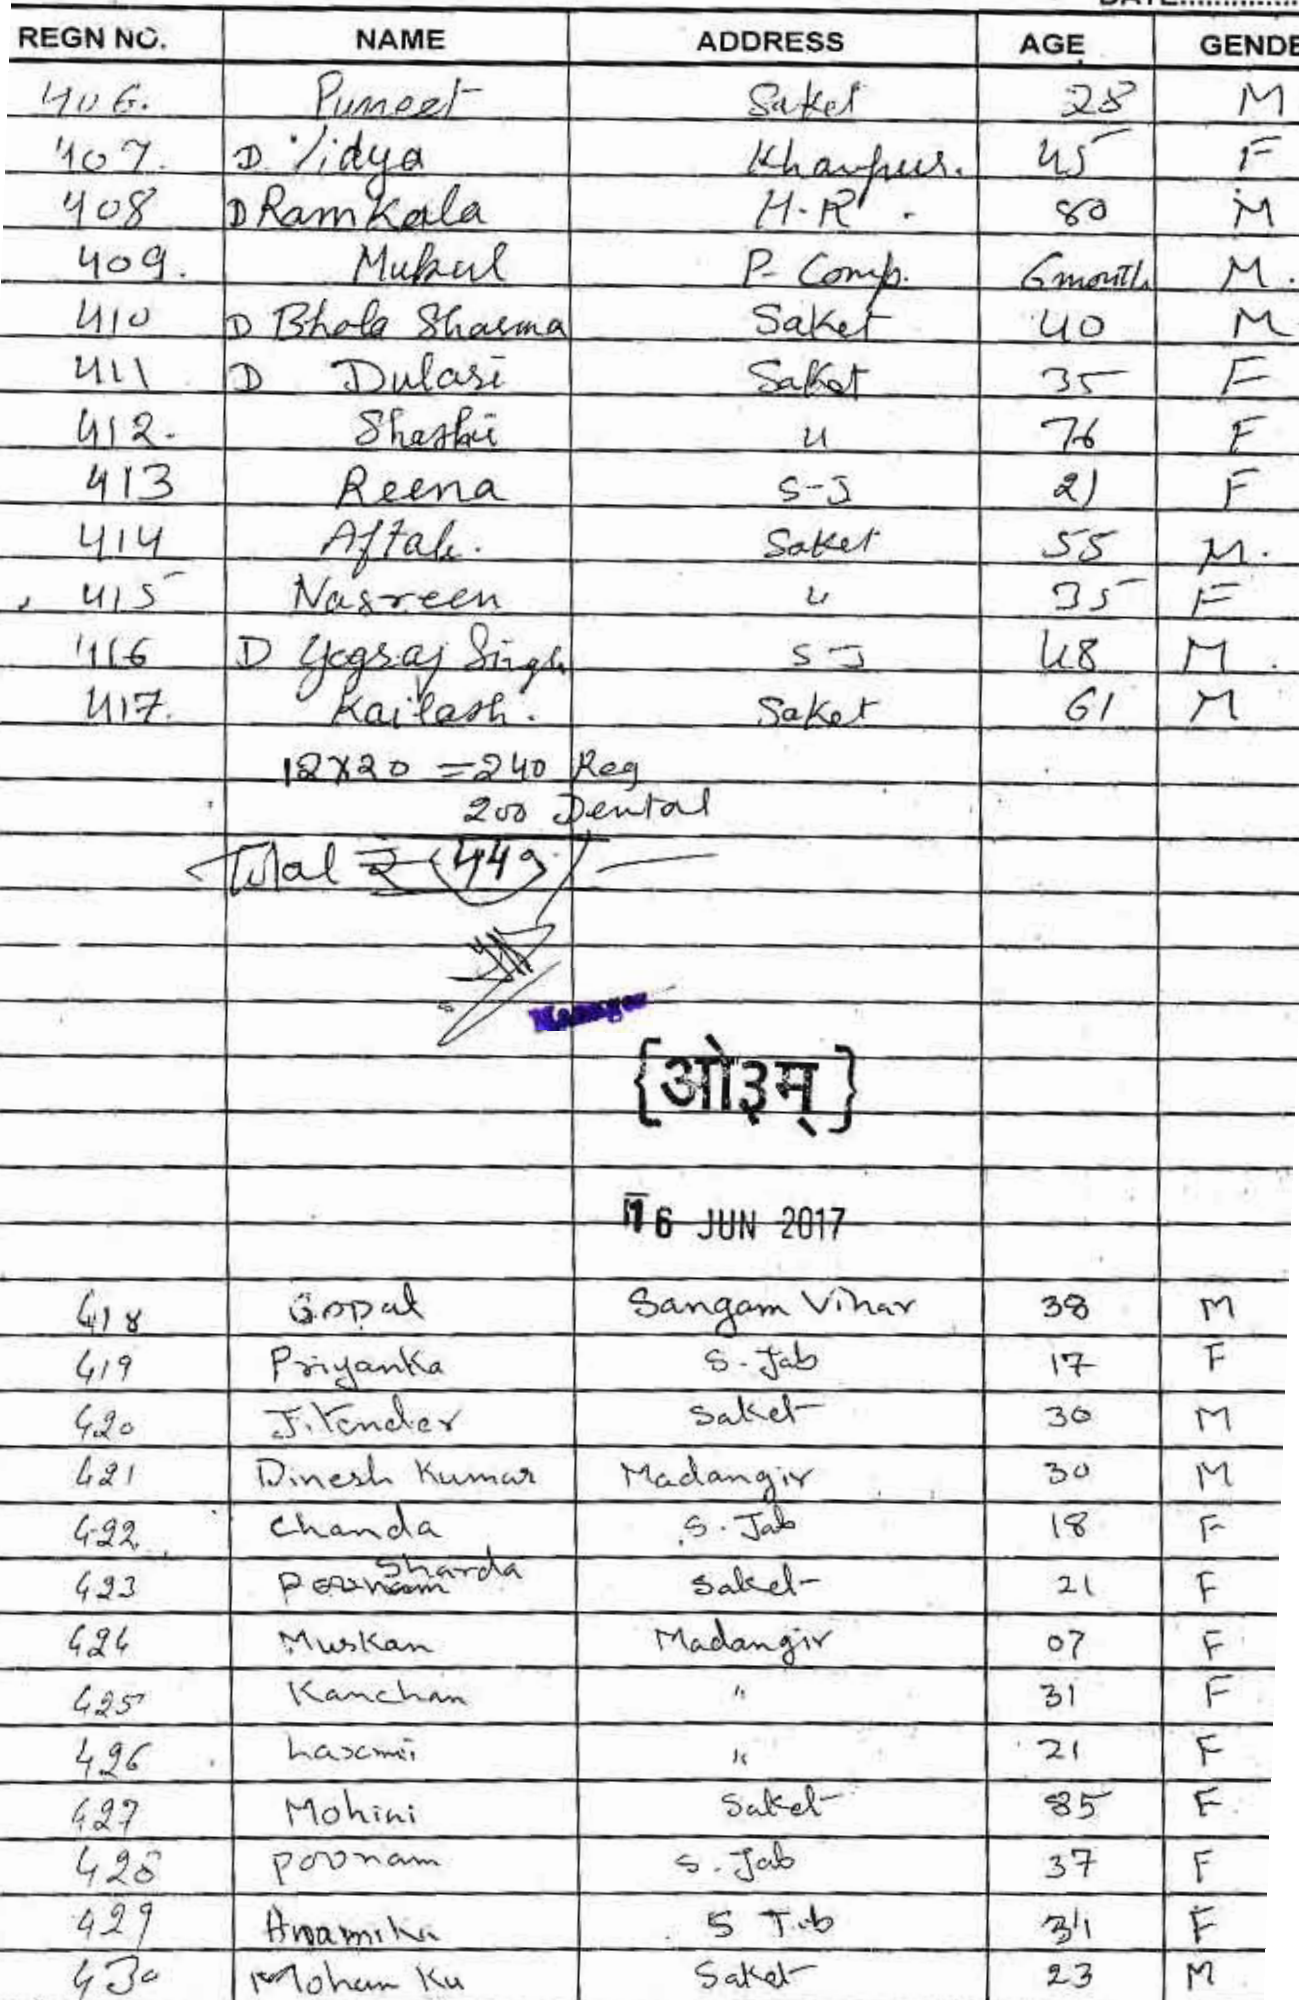 DATE..............
REGN NO. NAME ADDRESS AGE GENDE
406. Puneet Saket 28 M
407. D. Vidya Khanpur. 45 F
408 D Ram Kala H.R. 80 M
409. Mukul P- Comp. 6 month M.
410 D Bhola Sharma Saket 40 M
411 D Dulasi Saket 35 F
412. Shashi " 76 F
413 Reena S-J 21 F
414 Aftab. Saket 55 M.
415 Nasreen " 35 F
416 D Yograj Singh S J 48 M.
417. Kailash. Saket 61 M
12X20 = 240 Reg
200 Dental
Total ₹ 440
Manager
{ओ३म्}
16 JUN 2017
418 Gopal Sangam Vihar 38 M
419 Priyanka S. Jab 17 F
420 Jitender Saket 30 M
421 Dinesh Kumar Madangir 30 M
422 Chanda S. Jab 18 F
423 Sharda Saket 21 F
424 Muskan Madangir 07 F
425 Kanchan " 31 F
426 Laxmi " 21 F
427 Mohini Saket 85 F
428 Poonam S. Jab 37 F
429 Anamika S Jab 34 F
430 Mohan Ku Saket 23 M